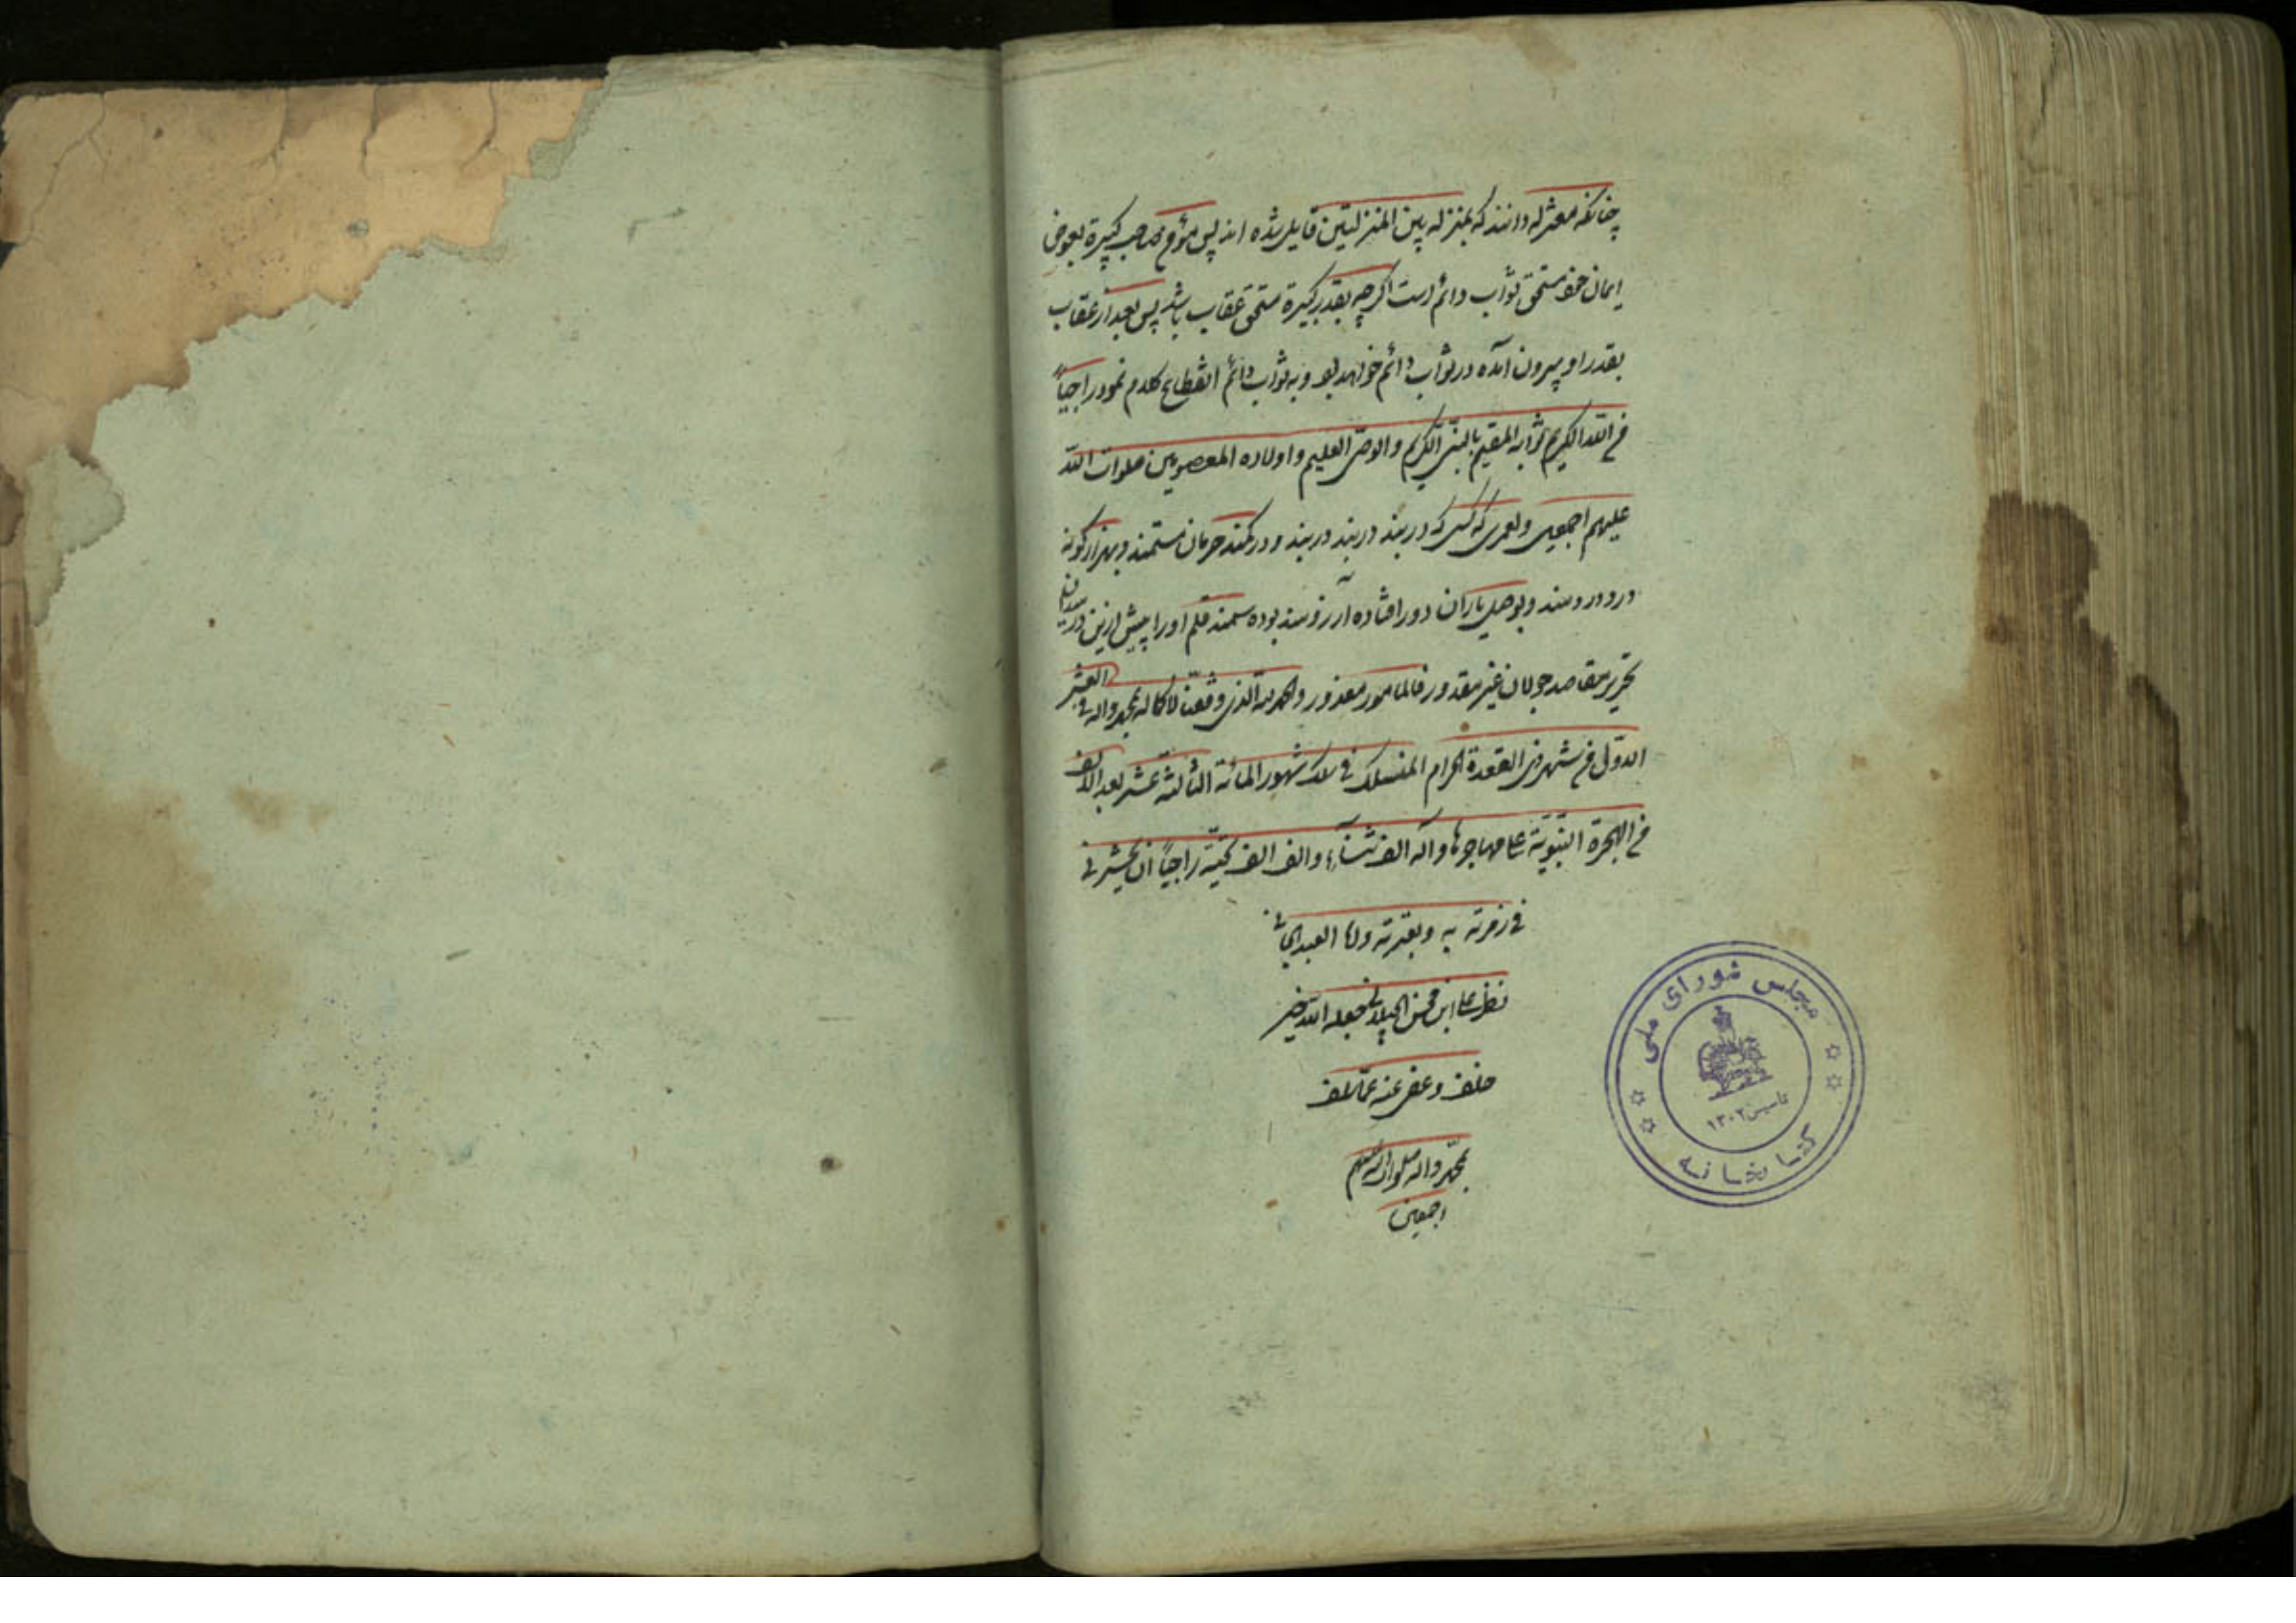 چنانکه معتزله دانند که بمنزله بین المنزلتین قایل شده اند پس مؤمن صاحب کبیرة بعوض
ایمان خود مستحق ثواب دائم است اگر چه بقدر کبیرة مستحق عقاب باشد پس بعد از عقاب
بقدر او بیرون آمده در ثواب دائم خواهد بود و به ثواب دائم انقطاع کلام نمود راجیاً
من الله الکریم ثوابه المقیم بالنبی الکریم والوصی العلیم و اولاده المعصومین صلوات الله
علیهم اجمعین و لعمری که کسی که در بند در بند در بند و در کمند حرمان مستمند و بهزار گونه
درد دردمند و بوصل یاران دور افتاده آرزومند بوده سمند قلم او را پیش ازین در میدان
تحریر مقاصد جولان غیر مقدور فالمامور معذور والحمد لله الذی وفقنا لاکماله بمحمد و آله فی العشر
الاول من شهر ذی القعدة الحرام المنسلک فی سلک شهور المائة الثالثة عشر بعد الالف
من الهجرة النبویة علی مهاجرها و آله الف ثناء و الف الف تحیة راجیاً ان یحشرنی
فی زمرته به و بعترته و انا العبد الجانی
نظر علی ابن محسن الجیلانی جعله الله خیر
خلف و عفی عنه عما سلف
بمحمد و اله صلوات الله علیهم
اجمعین
مجلس شورای ملی
تاسیس ۱۳۰۲
کتابخانه